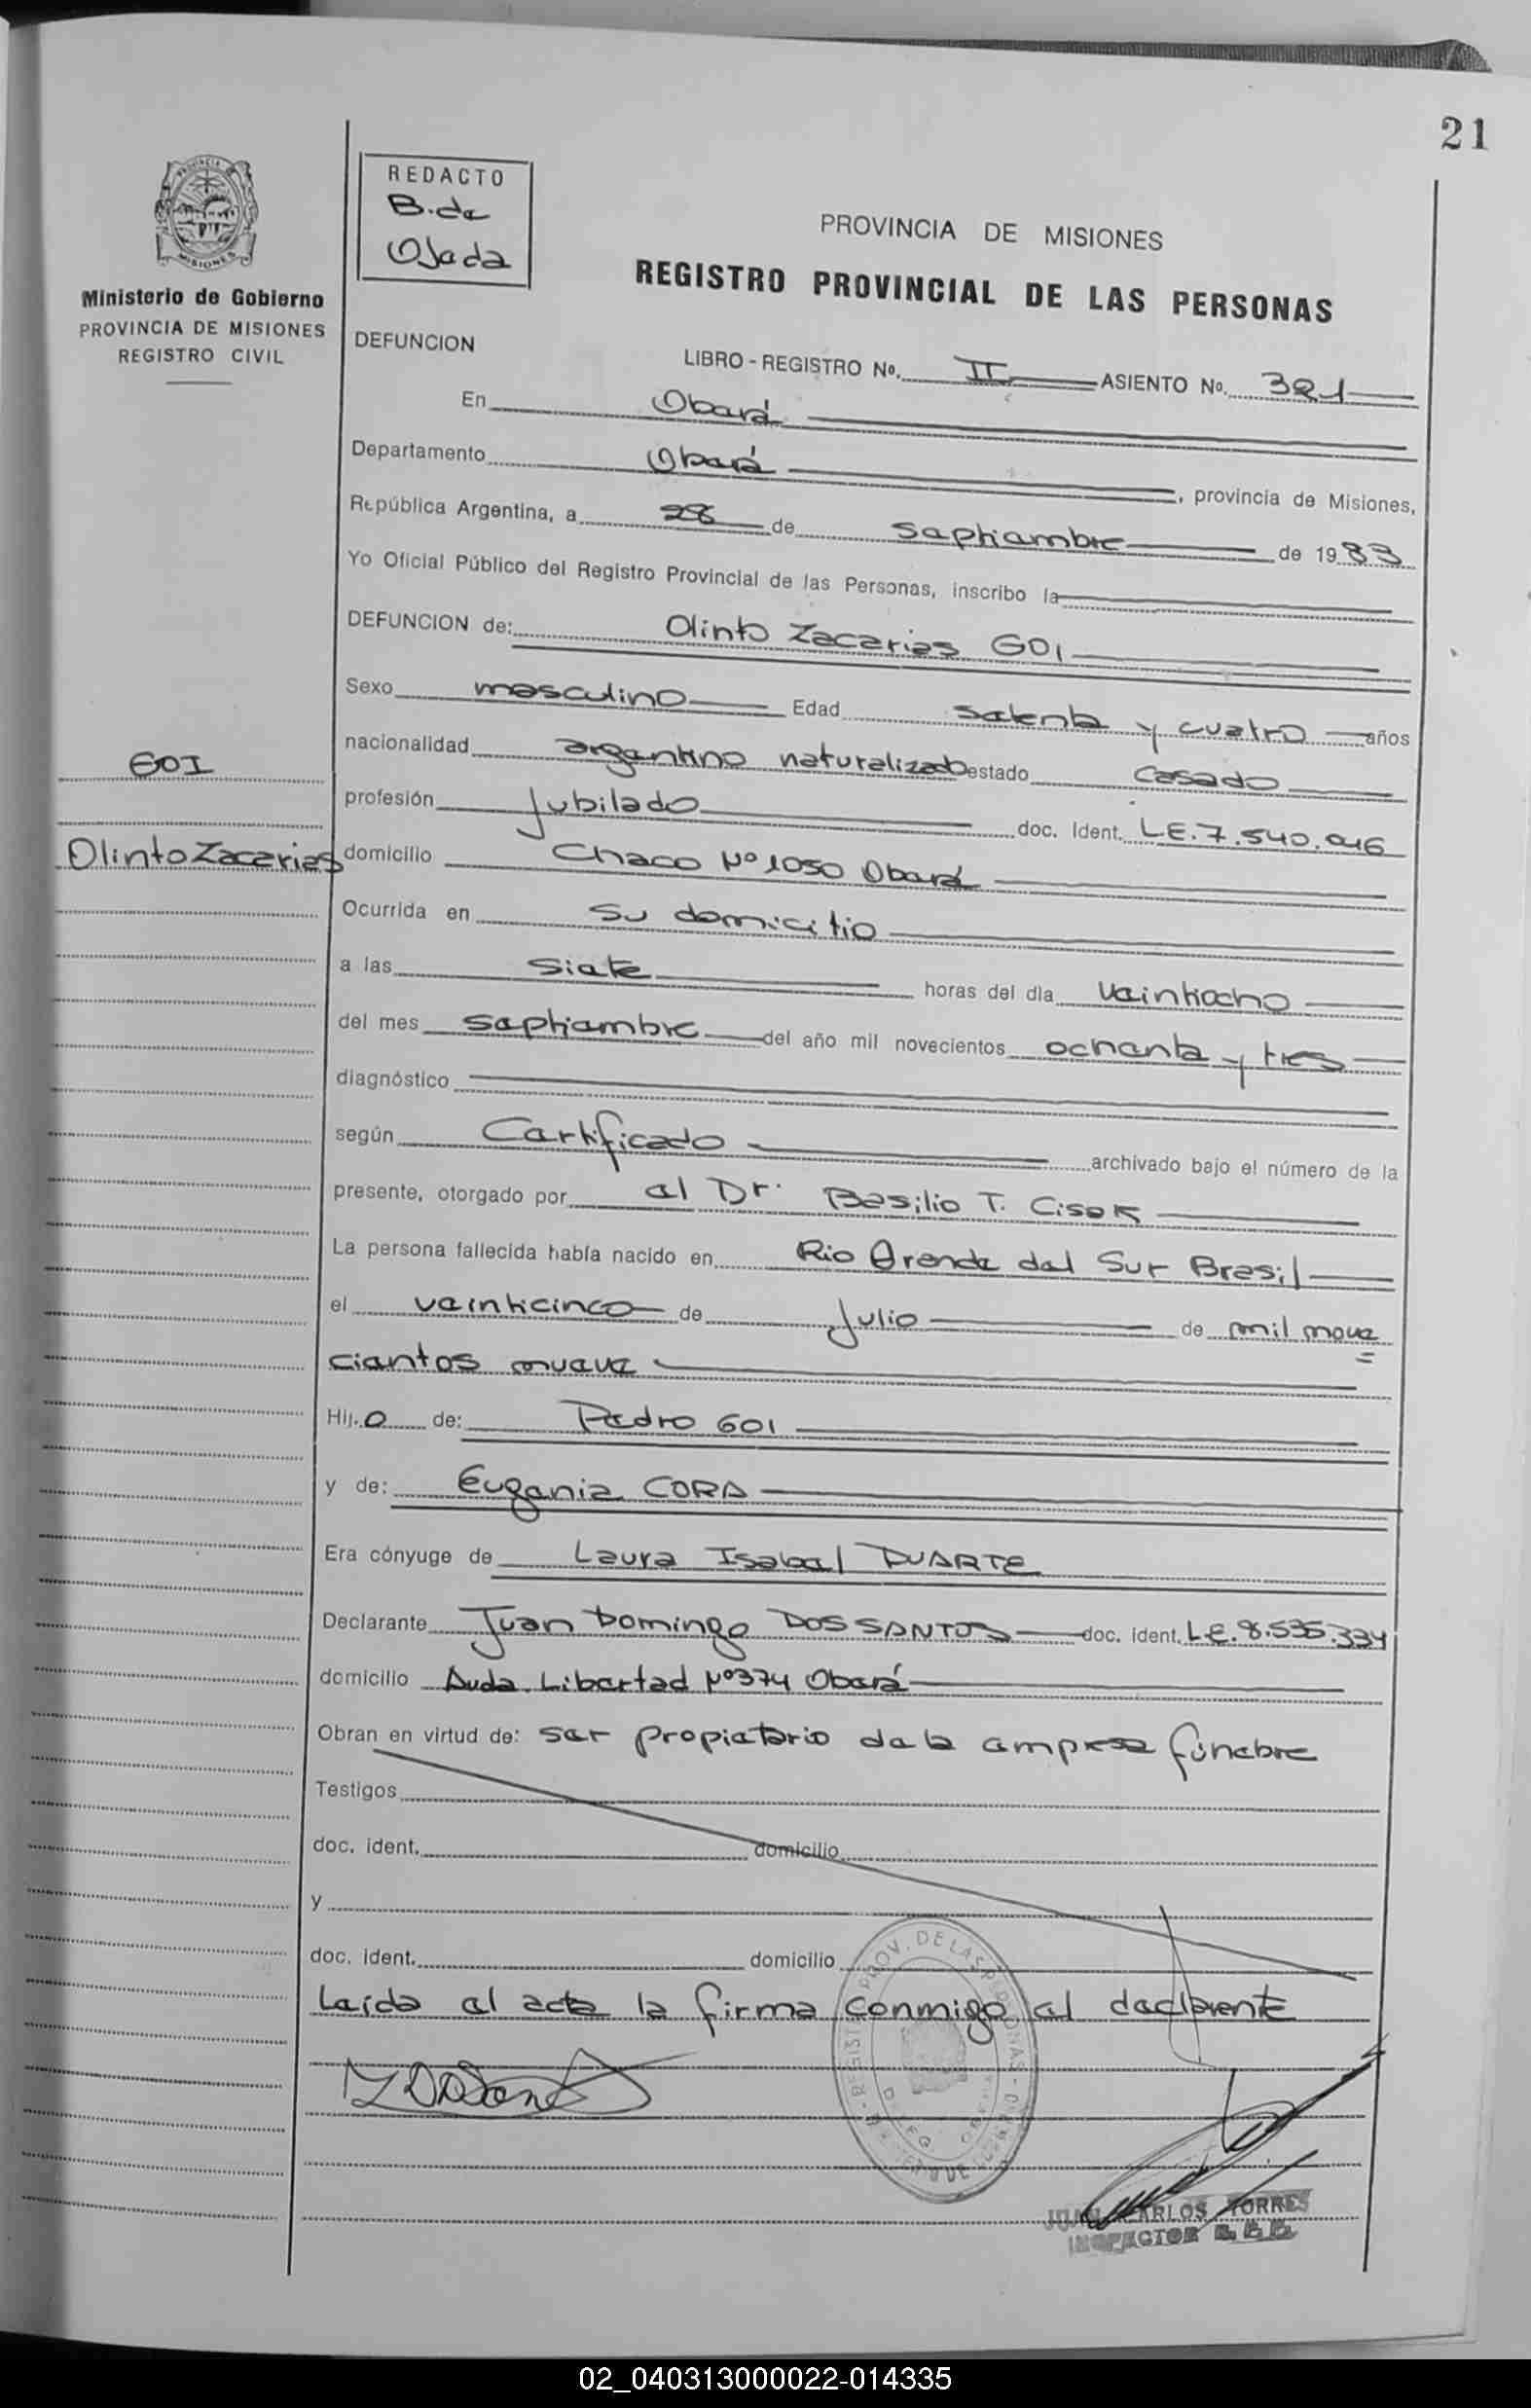 21
REDACTO
B. de
Ojeda
PROVINCIA DE MISIONES
REGISTRO PROVINCIAL DE LAS PERSONAS
PROVINCIA
MISIONES
Ministerio de Gobierno
PROVINCIA DE MISIONES
REGISTRO CIVIL
DEFUNCION
LIBRO - REGISTRO Nº. II ASIENTO Nº. 321
En Oberá
Departamento Oberá, provincia de Misiones,
República Argentina, a 28 de septiembre de 1983
Yo Oficial Público del Registro Provincial de las Personas, inscribo la
DEFUNCION de: Olinto Zacarias GOI
Sexo masculino Edad setenta y cuatro años
nacionalidad argentino naturalizado estado casado
GOI
profesión Jubilado doc. Ident. L.E. 7.540.046
Olinto Zacarias
domicilio Chaco Nº 1050 Oberá
Ocurrida en su domicilio
a las siete horas del día veintiocho
del mes septiembre del año mil novecientos ochenta y tres
diagnóstico
según Certificado archivado bajo el número de la
presente, otorgado por el Dr. Basilio T. Cisek
La persona fallecida había nacido en Rio Grande del Sur Brasil
el veinticinco de Julio de mil nove=
cientos nueve
Hij.o de: Pedro GOI
y de: Eugenia CORA
Era cónyuge de Laura Isabel DUARTE
Declarante Juan Domingo DOS SANTOS doc. ident. L.E. 8.535.334
domicilio Avda. Libertad Nº 374 Oberá
Obran en virtud de: ser propietario de la empresa fúnebre
Testigos
doc. ident. domicilio
y
doc. ident. domicilio
Leída el acta la firma conmigo el declarante
JUAN CARLOS TORRES
INSPECTOR
02_040313000022-014335